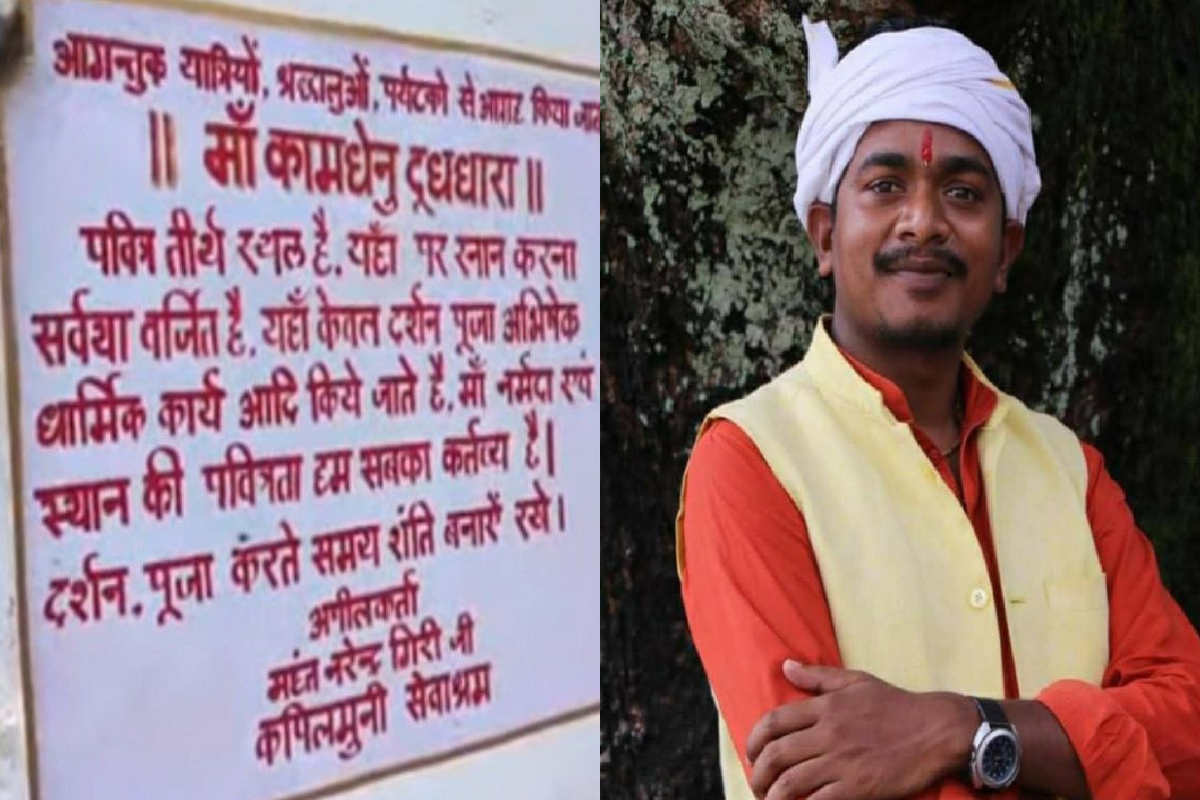 आगन्तुक यात्रियों, श्रद्धालुओं, पर्यटको से आग्रह किया जात
|| माँ कामधेनु दूधधारा ||
पवित्र तीर्थ स्थल है, यहाँ पर स्नान करना
सर्वथा वर्जित है, यहाँ केवल दर्शन पूजा अभिषेक
धार्मिक कार्य आदि किये जाते है, माँ नर्मदा एवं
स्थान की पवित्रता हम सबका कर्तव्य है|
दर्शन, पूजा करते समय शंति बनाऐं रखे।
अपीलकर्ता
महंत नरेन्द्र गिरी जी
कपिलमुनी सेवाश्रम